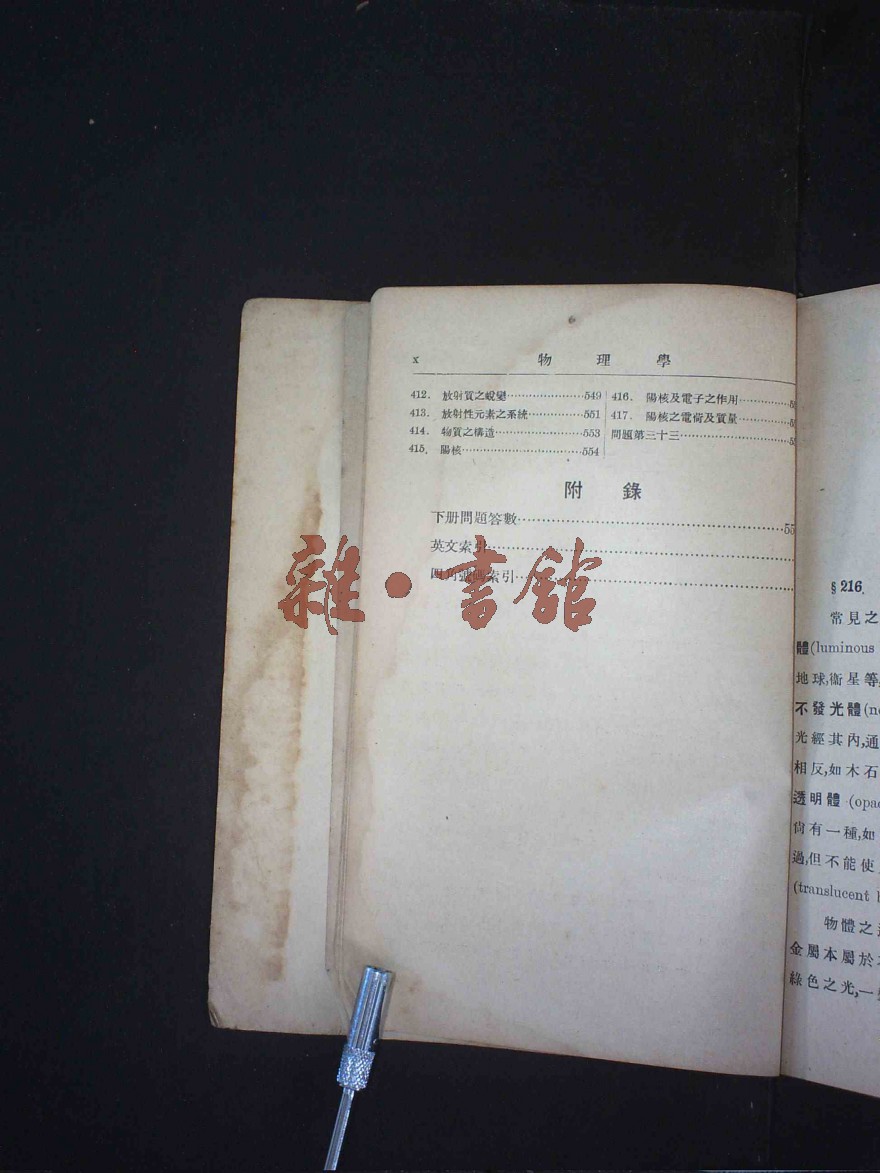 x 物 理 學
412. 放射質之蛻變…………549
413. 放射性元素之系統…………551
414. 物質之構造…………553
415. 陽核…………554
416. 陽核及電子之作用…………
417. 陽核之電荷及質量…………
問題第三十三…………
附 錄
下册問題答數…………
英文索引…………
四角號碼索引…………
雜·書館
§216.
常見之
體(luminous
地球,衞星等,
不發光體(no
光經其內,通
相反,如木石
透明體 (opa
尙有一種,如
過,但不能使
(translucent
物體之
金屬本屬於
綠色之光,一